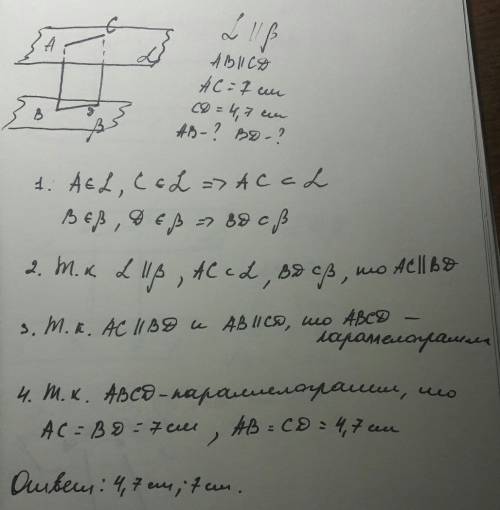 A C α
B D β
α || β
AB || CD
AC = 7 см
CD = 4,7 см
AB - ? BD - ?
1. A ∈ α, C ∈ α => AC ⊂ α
B ∈ β, D ∈ β => BD ⊂ β
2. Т.к α || β, AC ⊂ α, BD ⊂ β, то AC || BD
3. Т.к. AC || BD и AB || CD, то ABCD –
параллелограмм
4. Т.к. ABCD - параллелограмм, то
AC = BD = 7 см, AB = CD = 4,7 см
Ответ: 4,7 см; 7 см.